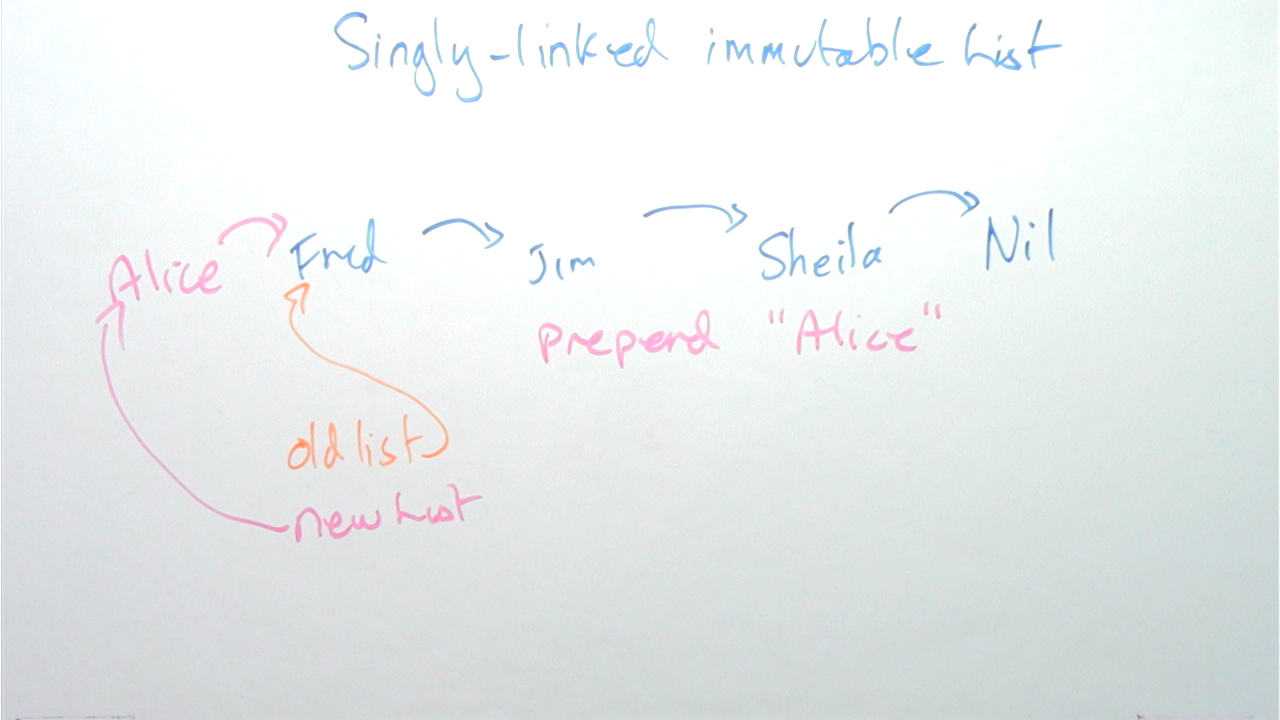 Singly-linked immutable List
Alice Fred Jim Sheila Nil
prepend "Alice"
old list
new List